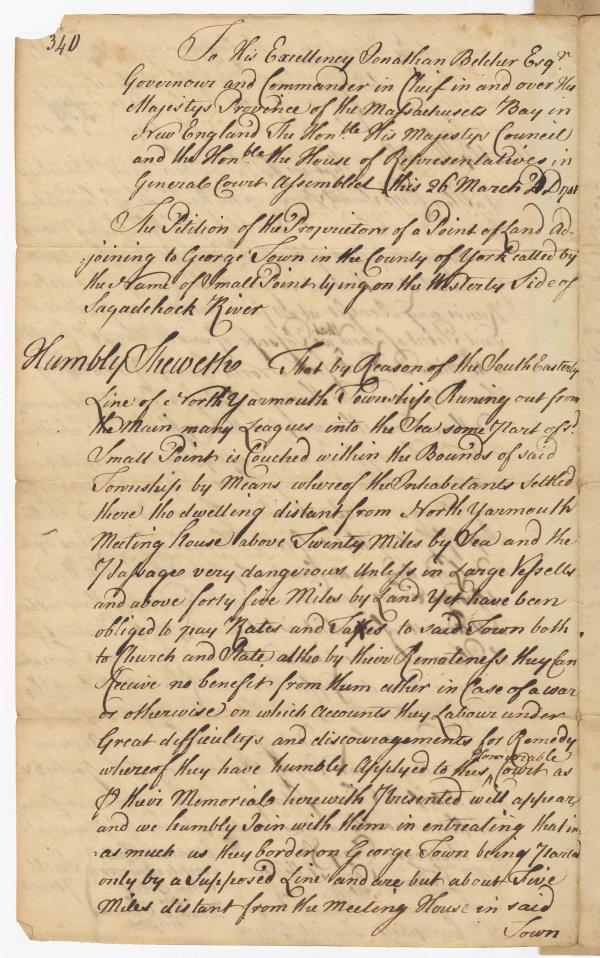 340
To His Excellency Jonathan Belcher Esqr
Governour and Commander in Chief in and over His
Majestys Province of the Massachusets Bay in
New England The Honble His Majestys Council
and the Honble the House of Representatives in
General Court Assembled this 26 March AD 1741
The Petition of the Proprietors of a Point of Land Ad-
:joining to George Town in the County of York called by
the Name of Small Point lying on the Westerly Side of
Sagadehock River
Humbly Sheweth That by Reason of the South Easterly
Line of North Yarmouth Township Runing out from
the Main many Leagues into the Sea some Part of sd
Small Point is Couched within the Bounds of said
Township by Means whereof the Inhabetants settled
there tho dwelling distant from North Yarmouth
Meeting house above Twenty Miles by Sea and the
Passage very dangerous Unless in Large Vessells
and above forty five Miles by Land Yet have been
obliged to pay Rates and Taxes to said Town both
to Church and State altho by their Remoteness they Can
Receive no benefit from them either in Case of a war
or otherwise on which accounts they Labour under
Great difficultys and discouragements for Remedy
whereof they have humbly Applyed to this Honourable Court as
P their Memorial herewith Presented will appear
and we humbly Join with them in entreating that in
:as much as they border on George Town being Parted
only by a Supposed Line and are but about Five
Miles distant from the Meeting House in said
Town